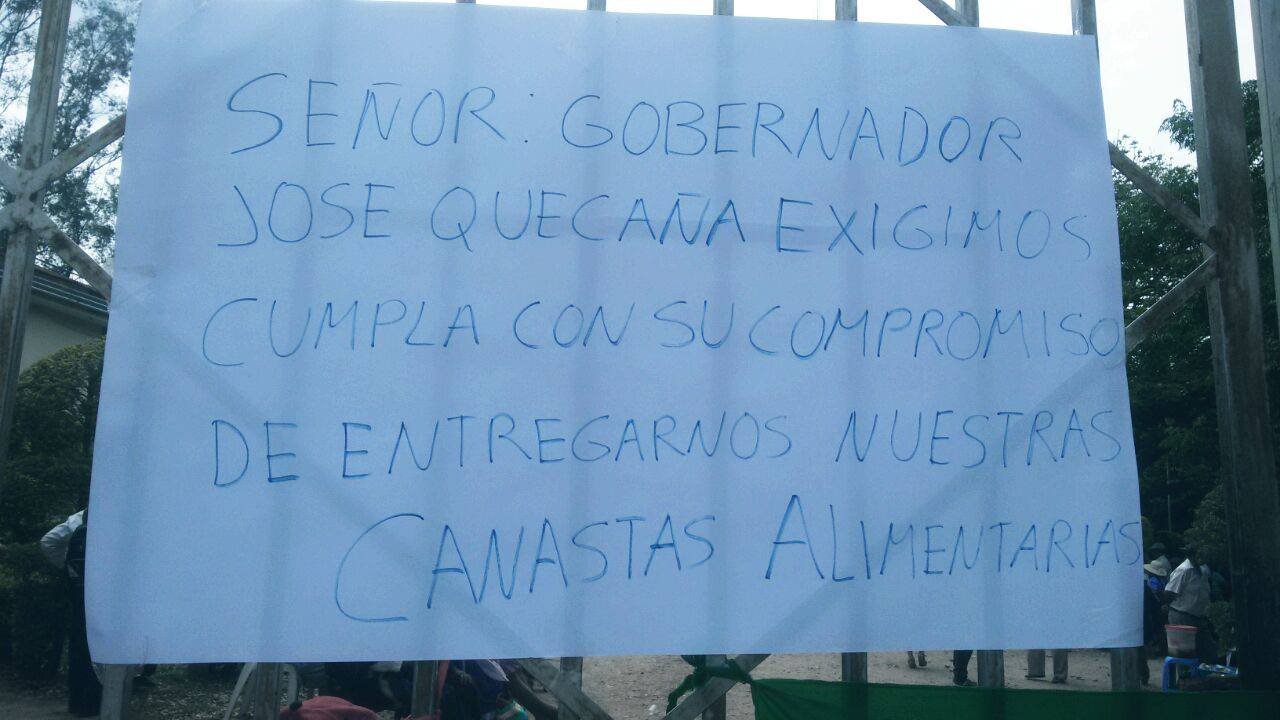 SEÑOR: GOBERNADOR
JOSE QUECAÑA EXIGIMOS
CUMPLA CON SU COMPROMISO
DE ENTREGARNOS NUESTRAS
CANASTAS ALIMENTARIAS